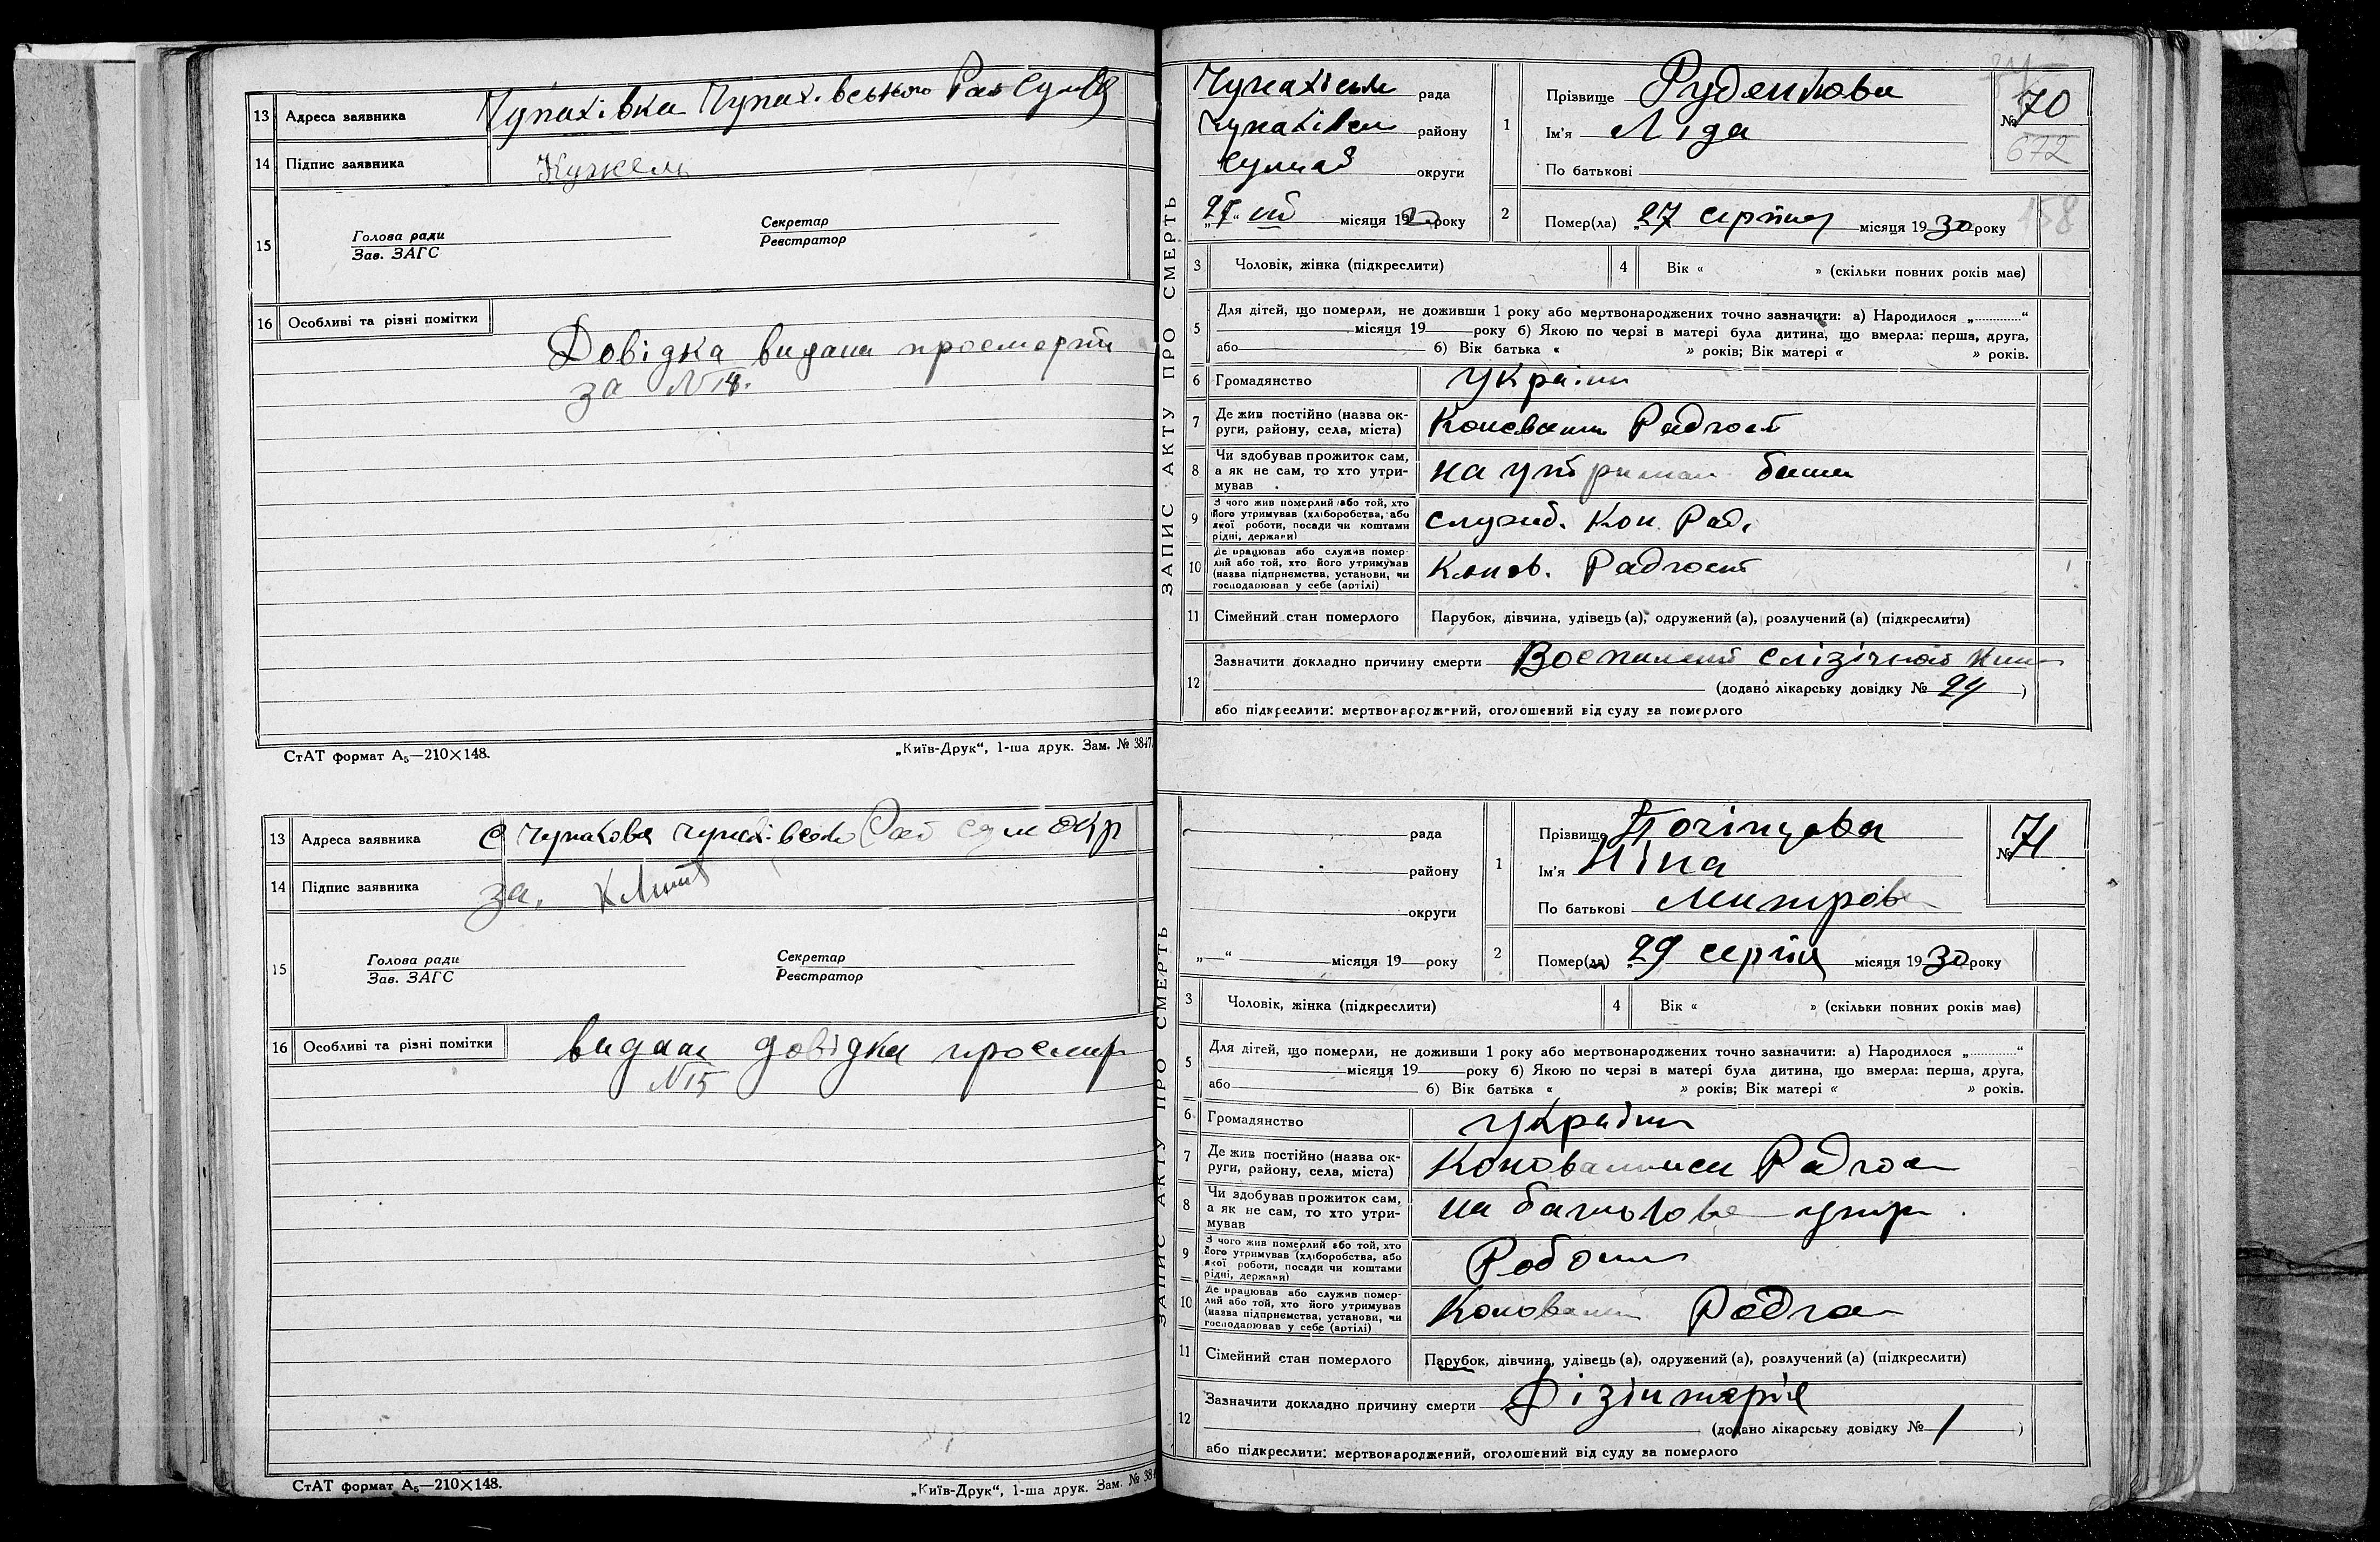 13 Адреса заявника Чупахівка Чупахівського Рай Сум
14 Підпис заявника
15 Голова ради Секретар
Зав. ЗАГС Реєстратор
16 Особливі та різні помітки
Довідка видана про смерть
за N 14.
СтАТ формат А₅—210×148. „Київ-Друк“, 1-ша друк. Зам. № 3847
13 Адреса заявника с Чупаховка Рай Сум Окр
14 Підпис заявника за.
15 Голова ради Секретар
Зав. ЗАГС Реєстратор
16 Особливі та різні помітки видана довідка
N 15
СтАТ формат А₅—210×148. „Київ-Друк“, 1-ша друк. Зам. № 38
ЗАПИС АКТУ ПРО СМЕРТЬ
рада
району
округи
місяця 19 року
1 Прізвище Руденкова
Ім’я Ліда
По батькові
№ 70
672
158
2 Помер(ла) „27 серпня місяця 1930 року
3 Чоловік, жінка (підкреслити) 4 Вік « » (скільки повних років має)
5 Для дітей, що померли, не доживши 1 року або мертвонароджених точно зазначити: а) Народилося „............“
місяця 19 року б) Якою по черзі в матері була дитина, що вмерла: перша, друга,
або б) Вік батька « » років; Вік матері « » років.
6 Громадянство
7 Де жив постійно (назва ок-
руги, району, села, міста) Радгосп
8 Чи здобував прожиток сам,
а як не сам, то хто утри-
мував на утриман
9 З чого жив померлий або той, хто
його утримував (хліборобства, або
якої роботи, посади чи коштами
рідні, держави) служб. Кон. Рад.
10 Де працював або служив помер-
лий або той, хто його утримував
(назва підприємства, установи, чи
господарював у себе (артілі) Конов. Радгосп
11 Сімейний стан померлого Парубок, дівчина, удівець (а), одружений (а), розлучений (а) (підкреслити)
12 Зазначити докладно причину смерти
(додано лікарську довідку № 24 )
або підкреслити: мертвонароджений, оголошений від суду за померлого
ЗАПИС АКТУ ПРО СМЕРТЬ
рада
району
округи
„—“ місяця 19—року
1 Прізвище
Ім’я Ніна
По батькові
№ 71
2 Помер(ла) 29 серпня місяця 1930 року
3 Чоловік, жінка (підкреслити) 4 Вік « » (скільки повних років має)
5 Для дітей, що померли, не доживши 1 року або мертвонароджених точно зазначити: а) Народилося „............“
місяця 19 року б) Якою по черзі в матері була дитина, що вмерла: перша, друга,
або б) Вік батька « » років; Вік матері « » років.
6 Громадянство
7 Де жив постійно (назва ок-
руги, району, села, міста)
8 Чи здобував прожиток сам,
а як не сам, то хто утри-
мував на
9 З чого жив померлий або той, хто
його утримував (хліборобства, або
якої роботи, посади чи коштами
рідні, держави)
10 Де працював або служив помер-
лий або той, хто його утримував
(назва підприємства, установи, чи
господарював у себе (артілі)
11 Сімейний стан померлого Парубок, дівчина, удівець (а), одружений (а), розлучений (а) (підкреслити)
12 Зазначити докладно причину смерти Дізінтерія
(додано лікарську довідку № 1 )
або підкреслити: мертвонароджений, оголошений від суду за померлого